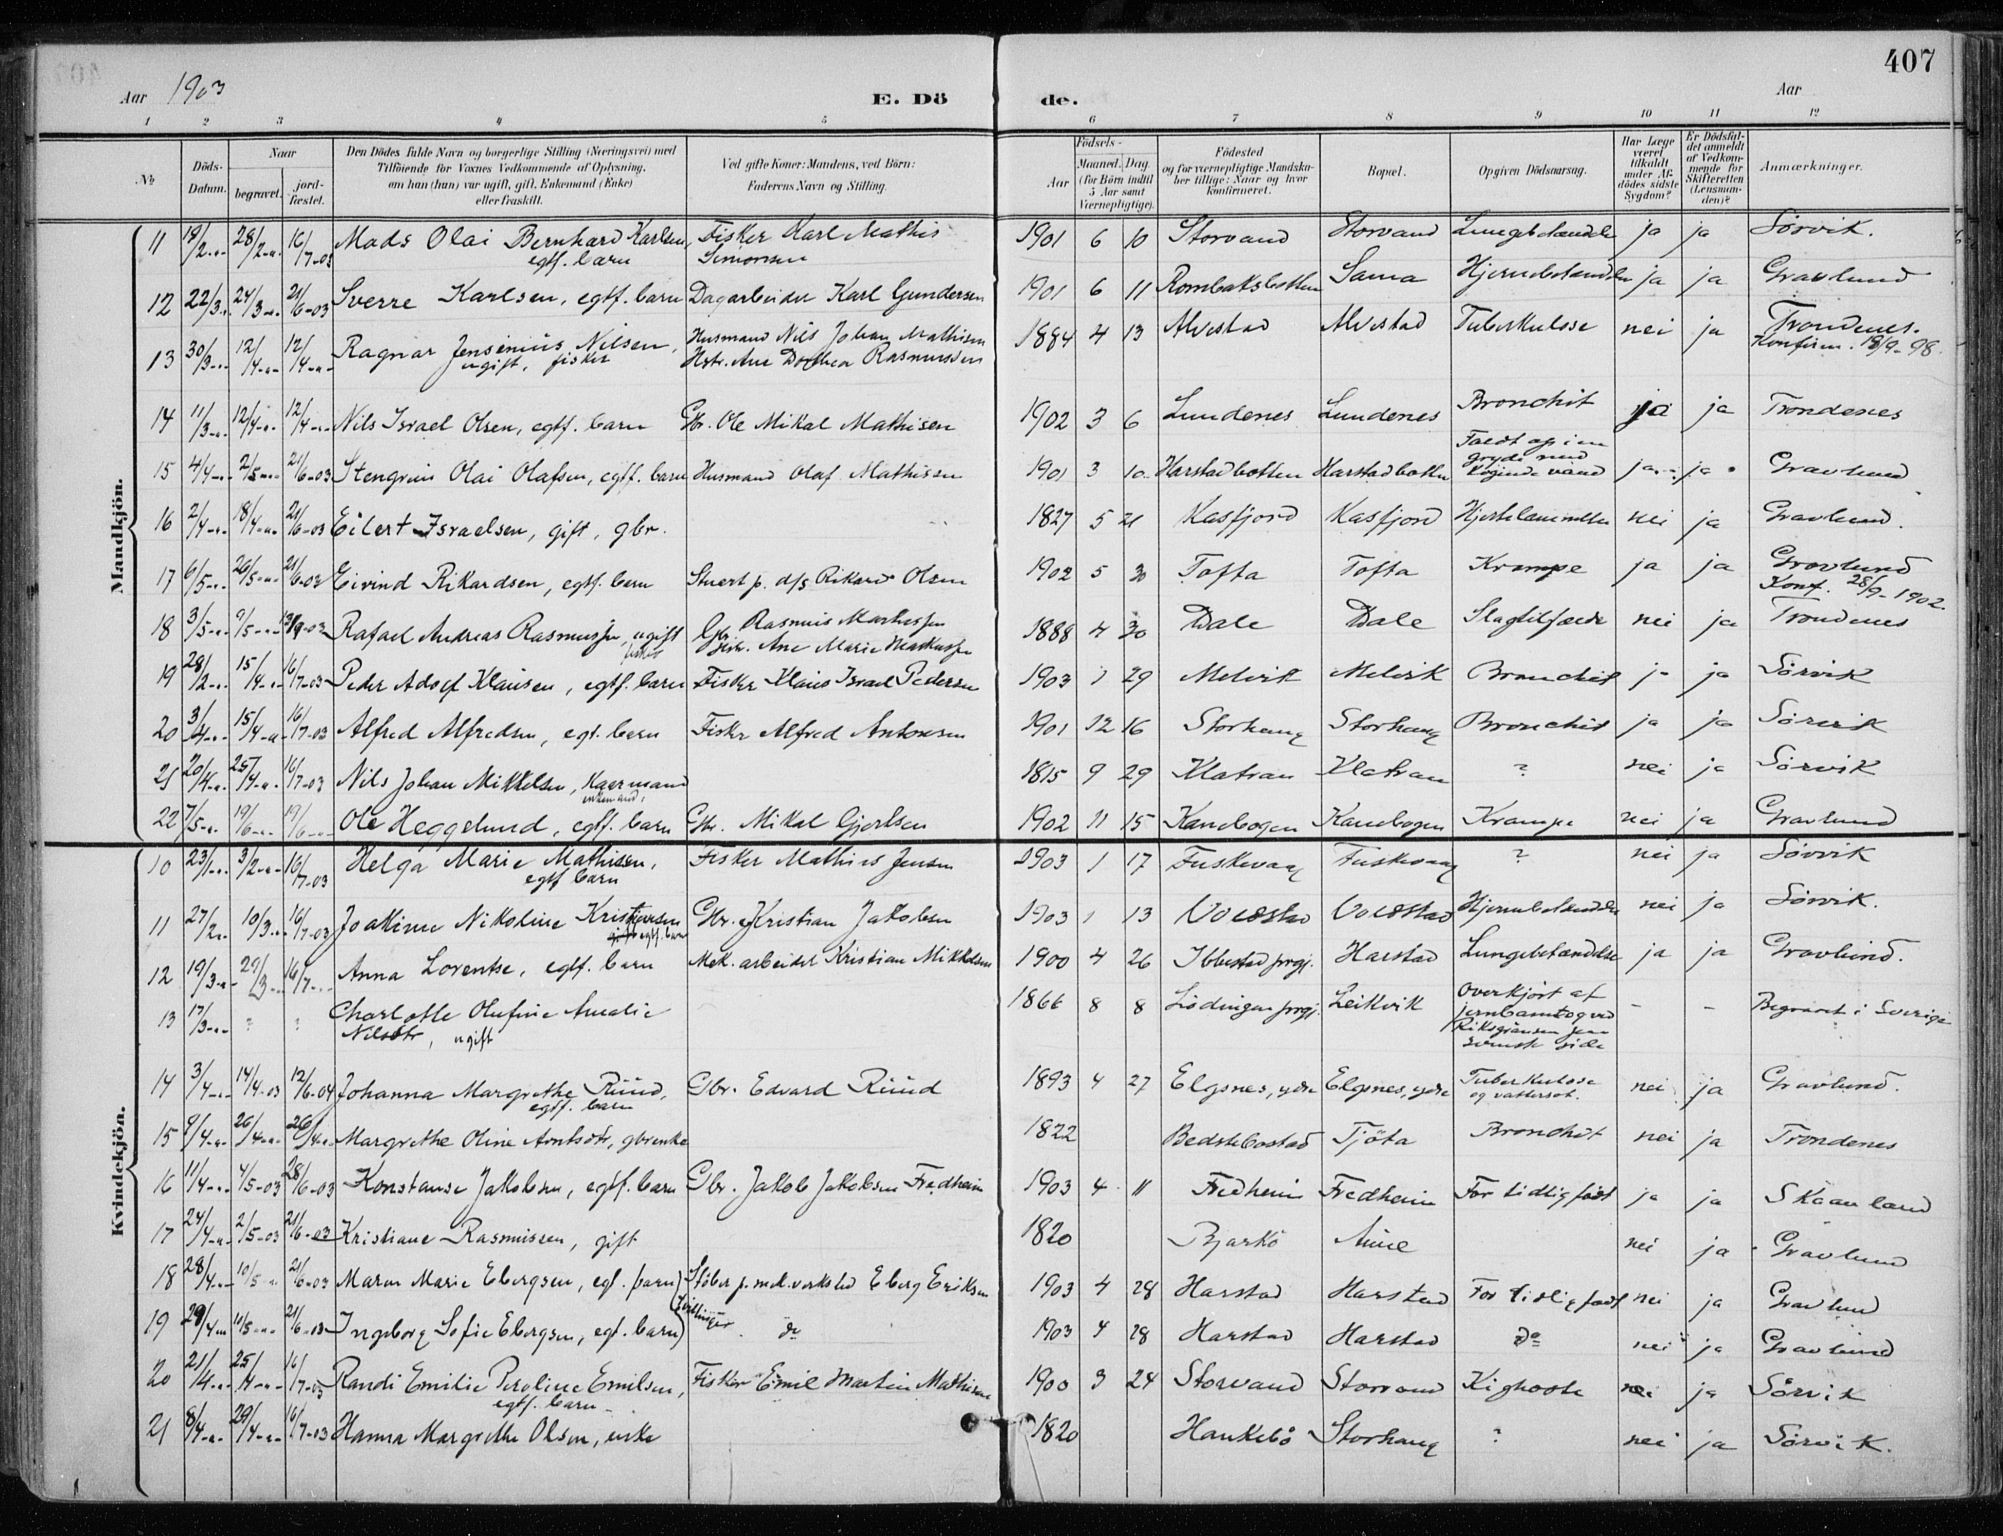 407
Aar 1903 E. Dö de. Aar
1 2 3 4 5 6 7 8 9 10 11 12
№ Döds-Datum. Naar begravet. jord-fæstet. Den Dödes fulde Navn og borgerlige Stilling (Næringsvei) med Tilföiende for Voxnes Vedkommende af Oplysning, om han (hun) var ugift, gift, Enkemand (Enke) eller fraskilt. Ved gifte Koner: Mandens, ved Börn: Faderens Navn og Stilling. Födsels- Aar Maaned. Dag. (for Börn indtil 5 Aar samt Værnepligtige). Födested og for værnepligtige Mandskaber tillige: Naar og hvor konfirmeret. Bopæl. Opgiven Dödsaarsag. Har Læge været tilkaldt under Afdödes sidste Sygdom? Er Dödsfaldet anmeldt af Vedkommende for Skifteretten (Lensmanden)? Anmærkninger.
Mandkjön.
11 19/2 28/2 16/7-03 Mads Olai Bernhard Karlsen, egtf. barn Fisker Karl Mathis Simonsen 1901 6 10 Storvand Storvand Lungebetændelse ja ja Sörvik.
12 22/3 24/3 21/6-03 Sverre Karlsen, egtf. barn Dagarbeider Karl Gundersen 1901 6 11 Rombaksbotten Sama Hjernebetændelse ja ja Gravlund
13 30/3 12/4 12/4 Ragnar Jensenius Nilsen, ugift, fisker Husmand Nils Johan Mathisen Hstr. Ane Dorthea Rasmusdtr 1884 4 13 Alvestad Alvestad Tuberkulose nei ja Trondenes. Konfirm. 18/9-98.
14 11/3 12/4 12/4 Nils Israel Olsen, egtf. barn Gbr. Ole Mikal Mathisen 1902 3 6 Lundenes Lundenes Bronchit ja ja Trondenes
15 4/4 2/5 21/6-03 Stengrim Olai Olafsen, egtf. barn Husmand Olaf Mathisen 1901 3 10 Harstadbotten Harstadbotten Faldt op i en gryde med kogende vand ja ja Gravlund
16 2/4 18/4 21/6-03 Eilert Israelsen, gift, gbr. 1827 5 21 Kasfjord Kasfjord Hjertelammelse nei ja Gravlund.
17 6/5 26/5 21/6-03 Eivind Rikardsen, egtf. barn Stuert p. d/s Rikard Olsen 1902 5 30 Tofta Tofta Krampe ja ja Gravlund
18 3/5 9/5 13/9-03 Rafael Andreas Rasmussen, ugift fisker Gbr. Rasmus Markussen Hstr. Ane Marie Markussen 1888 4 30 Dale Dale Slagtilfælde nei ja Konf. 28/9-1902. Trondenes
19 28/2 15/4 16/7-03 Peder Adolf Klausen, egtf. barn Fisker Klaus Israel Pedersen 1903 1 29 Melvik Melvik Bronchit ja ja Sörvik
20 3/4 15/4 16/7-03 Alfred Alfredsen, egt. barn Fisker Alfred Antonsen 1901 12 16 Storhaug Storhaug Bronchit ja ja Sörvik
21 20/4 25/4 16/7-03 Nils Johan Mikkelsen, Kaarmand enkemand, 1815 9 29 Klatran Klatran ? nei ja Sörvik
22 7/5 19/6 19/6 Ole Heggelund, egtf. barn Gbr. Mikal Gjertsen 1902 11 15 Kanebogen Kanebogen Krampe nei ja Gravlund
Kvindekjön.
10 23/1 3/2 16/7-03 Helga Marie Mathisen, egtf barn Fisker Mathias Jensen 1903 1 17 Fuskevaag Fuskevaag ? nei ja Sörvik
11 27/2 10/3 16/7-03 Joakime Nikoline Kristiansen egtf. barn Gbr. Kristian Jakobsen 1903 1 13 Voldstad Voldstad Hjernebetændelse nei ja Sörvik.
12 19/3 29/3 16/7 Anna Lorentse, egtf. barn Mek. arbeider Kristian Mikkelsen 1900 4 26 Ibbestad prgj. Harstad Lungebetændelse ja ja Gravlund.
13 17/3 ? ? Charlotte Olufine Amalie Nilsdtr, ugift 1866 8 8 Lödingen prgj. Leikvik Overkjört af jernbanetog ved Riksgränsen paa svensk side - - Begravet i Sverige
14 3/4 14/4-03 12/6-04 Johanna Margrethe Ruud, egtf. barn Gbr. Edvard Ruud 1893 4 27 Elgsnes, ydre Elgsnes, ydre Tuberkulose og vattersot. nei ja Gravlund.
15 9/4 26/4 26/4 Margrethe Oline Arntsdtr, gbrenke 1822 Bedstebostad Tjöta Bronchit nei ja Trondenes
16 11/4 4/5-03 28/6-03 Konstanse Jakobsen, egtf. barn Gbr. Jakob Jakobsen Fredheim 1903 4 11 Fredheim Fredheim For tidlig födt ja ja Skaanland
17 24/4 2/5-03 21/6-03 Kristiane Rasmussen, gift 1820 Bjarkö Aune nei ja Gravlund
18 28/4 10/5 21/6-03 Maren Marie Ebergsen, egt. barn) Støber p. mek. verksted Eberg Eriksen 1903 4 28 Harstad Harstad For tidlig födt nei ja Gravlund
19 29/4 10/5 21/6-03 Ingeborg Sofie Ebergsen, egt. barn) Tvillinger do 1903 4 28 Harstad Harstad do nei ja Gravlund
20 21/4 25/4 16/7-03 Randi Emilie Peroline Emilsen, egtf. barn Fisker Emil Martin Mathisen 1900 3 24 Storvand Storvand Kighoste nei ja Sörvik
21 8/4 29/4 16/7-03 Hanna Margrethe Olsen, enke 1820 Haukebö Storhaug ? nei ja Sörvik.